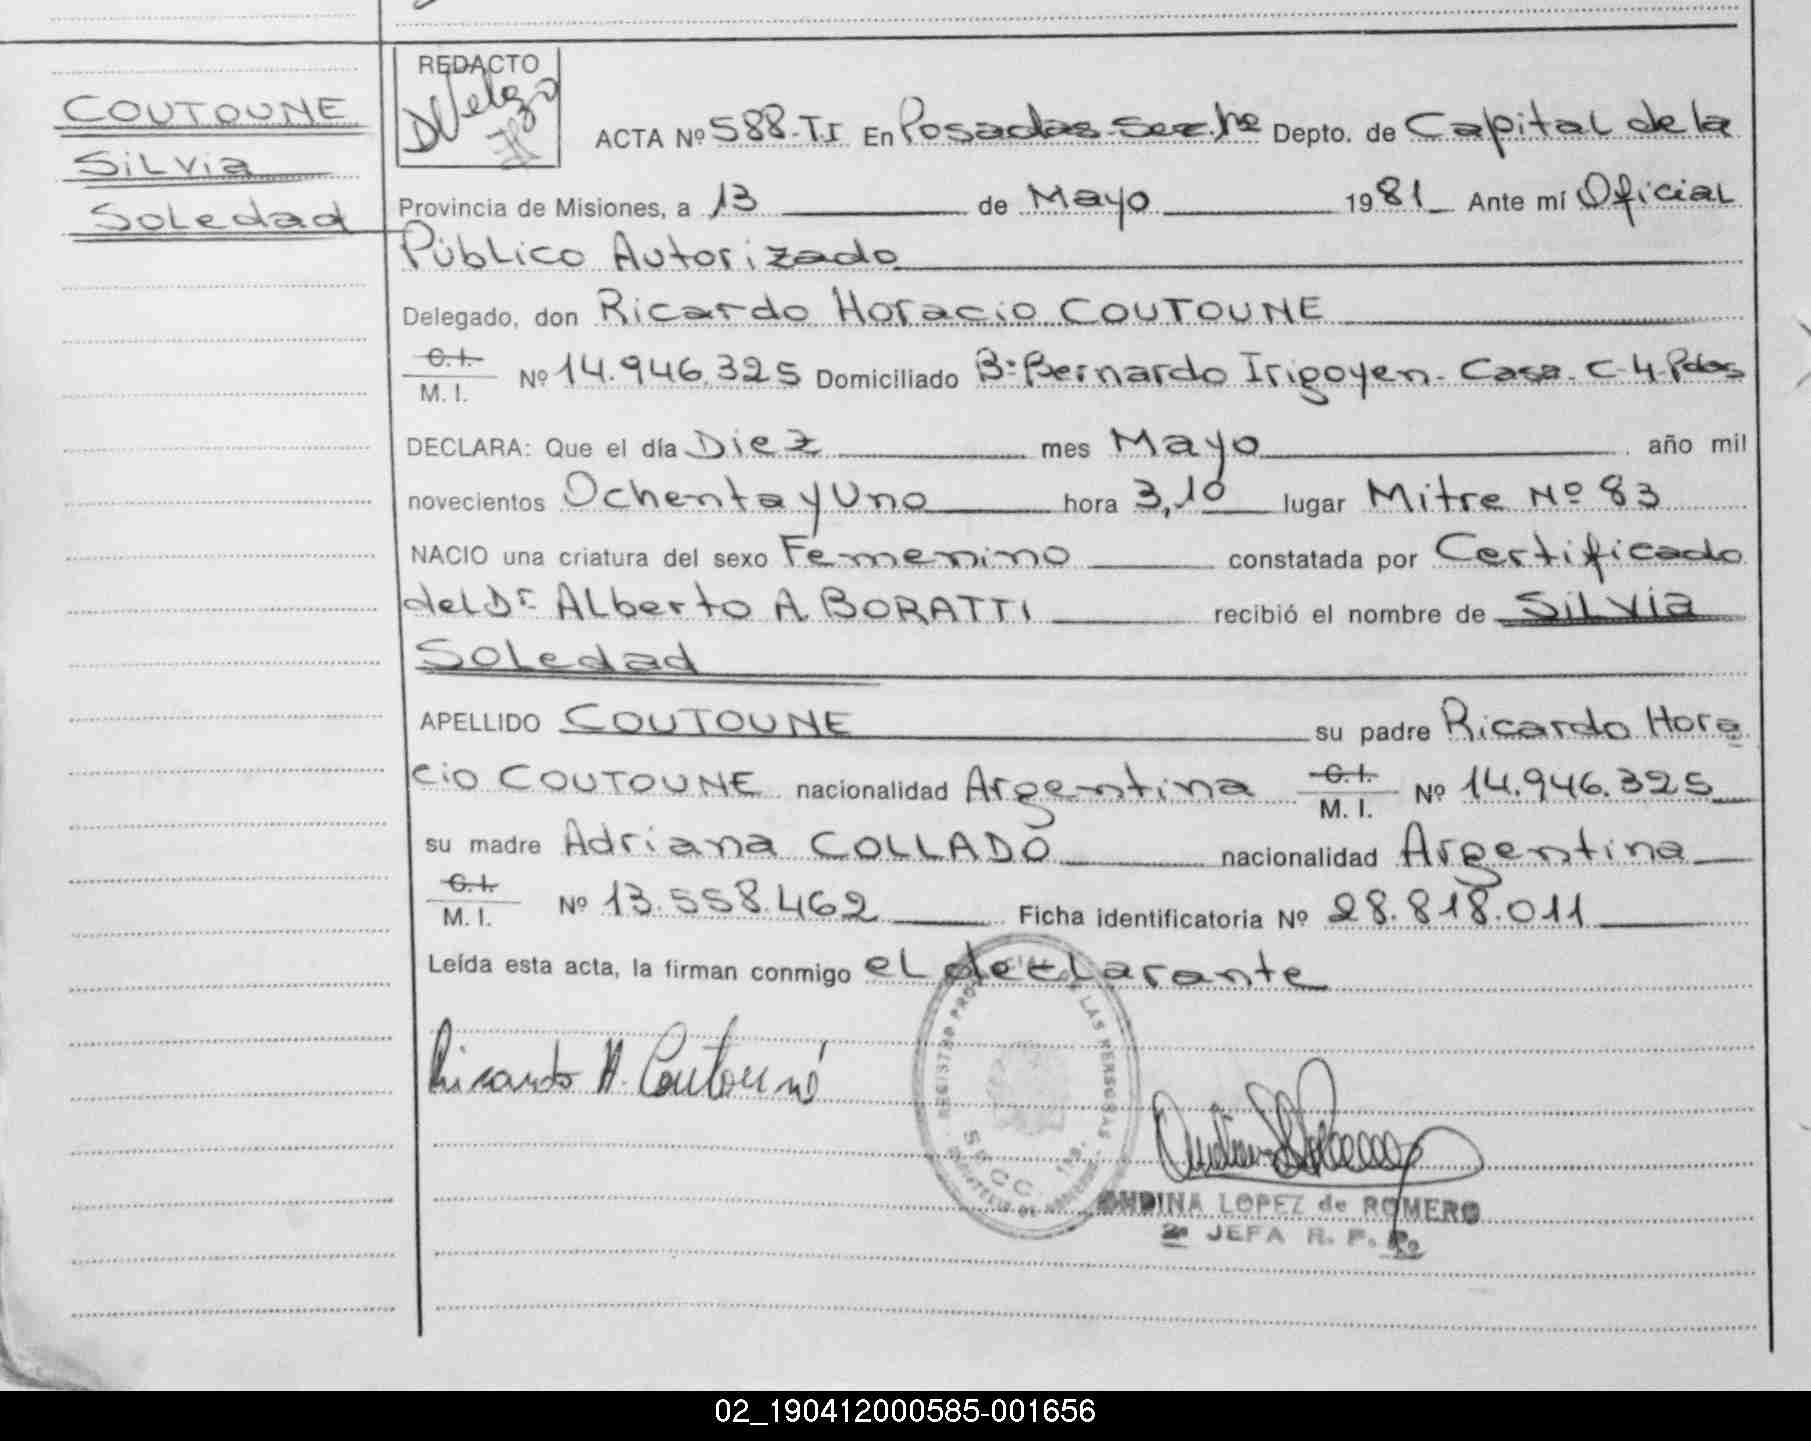 COUTOUNE
Silvia
Soledad
REDACTO
DVelazo
ACTA Nº 588-T.I En Posadas-Secc.1ra Depto. de Capital de la
Provincia de Misiones, a 13 de Mayo 1981 Ante mí Oficial
Público Autorizado
Delegado, don Ricardo Horacio COUTOUNE
C.I.
M. I. Nº 14.946.325 Domiciliado Bº Bernardo Irigoyen- Casa C-4-Pdas
DECLARA: Que el día Diez mes Mayo año mil
novecientos Ochenta y Uno hora 3,10 lugar Mitre Nº 83
NACIO una criatura del sexo Femenino constatada por Certificado
del Dr. Alberto A BORATTI recibió el nombre de Silvia
Soledad
APELLIDO COUTOUNE su padre Ricardo Hora
cio COUTOUNE nacionalidad Argentina C.I.
M. I. Nº 14.946.325
su madre Adriana COLLADO nacionalidad Argentina
C.I.
M. I. Nº 13.558.462 Ficha identificatoria Nº 28.818.011
Leída esta acta, la firman conmigo el declarante
REGISTRO PRO DE LAS PERSONAS
SECC. 1ra.
Ricardo H. Coutouné
ONDINA LOPEZ de ROMERO
2a JEFA R. P. P.
02_190412000585-001656